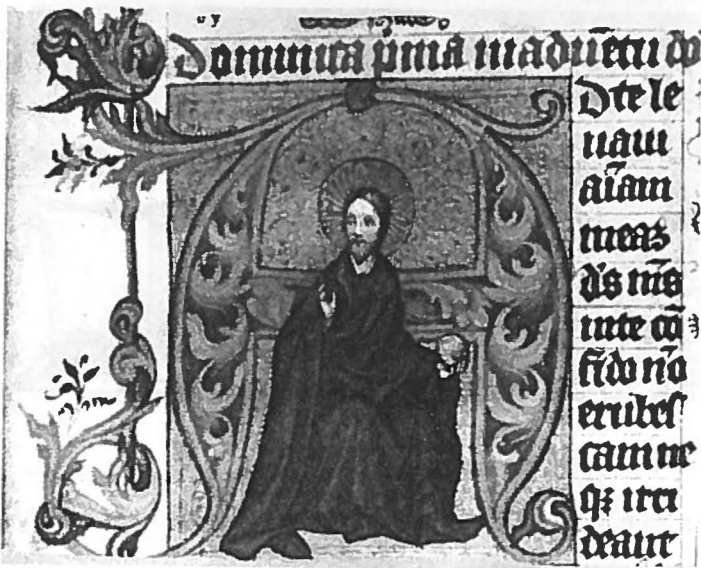 Dominica p̄ma in adūētu do
D te le
uaui
aīam
meaʒ
d̄s m̄s
in te cō
fido nō
erubes
cam ne
qʒ irri
deant